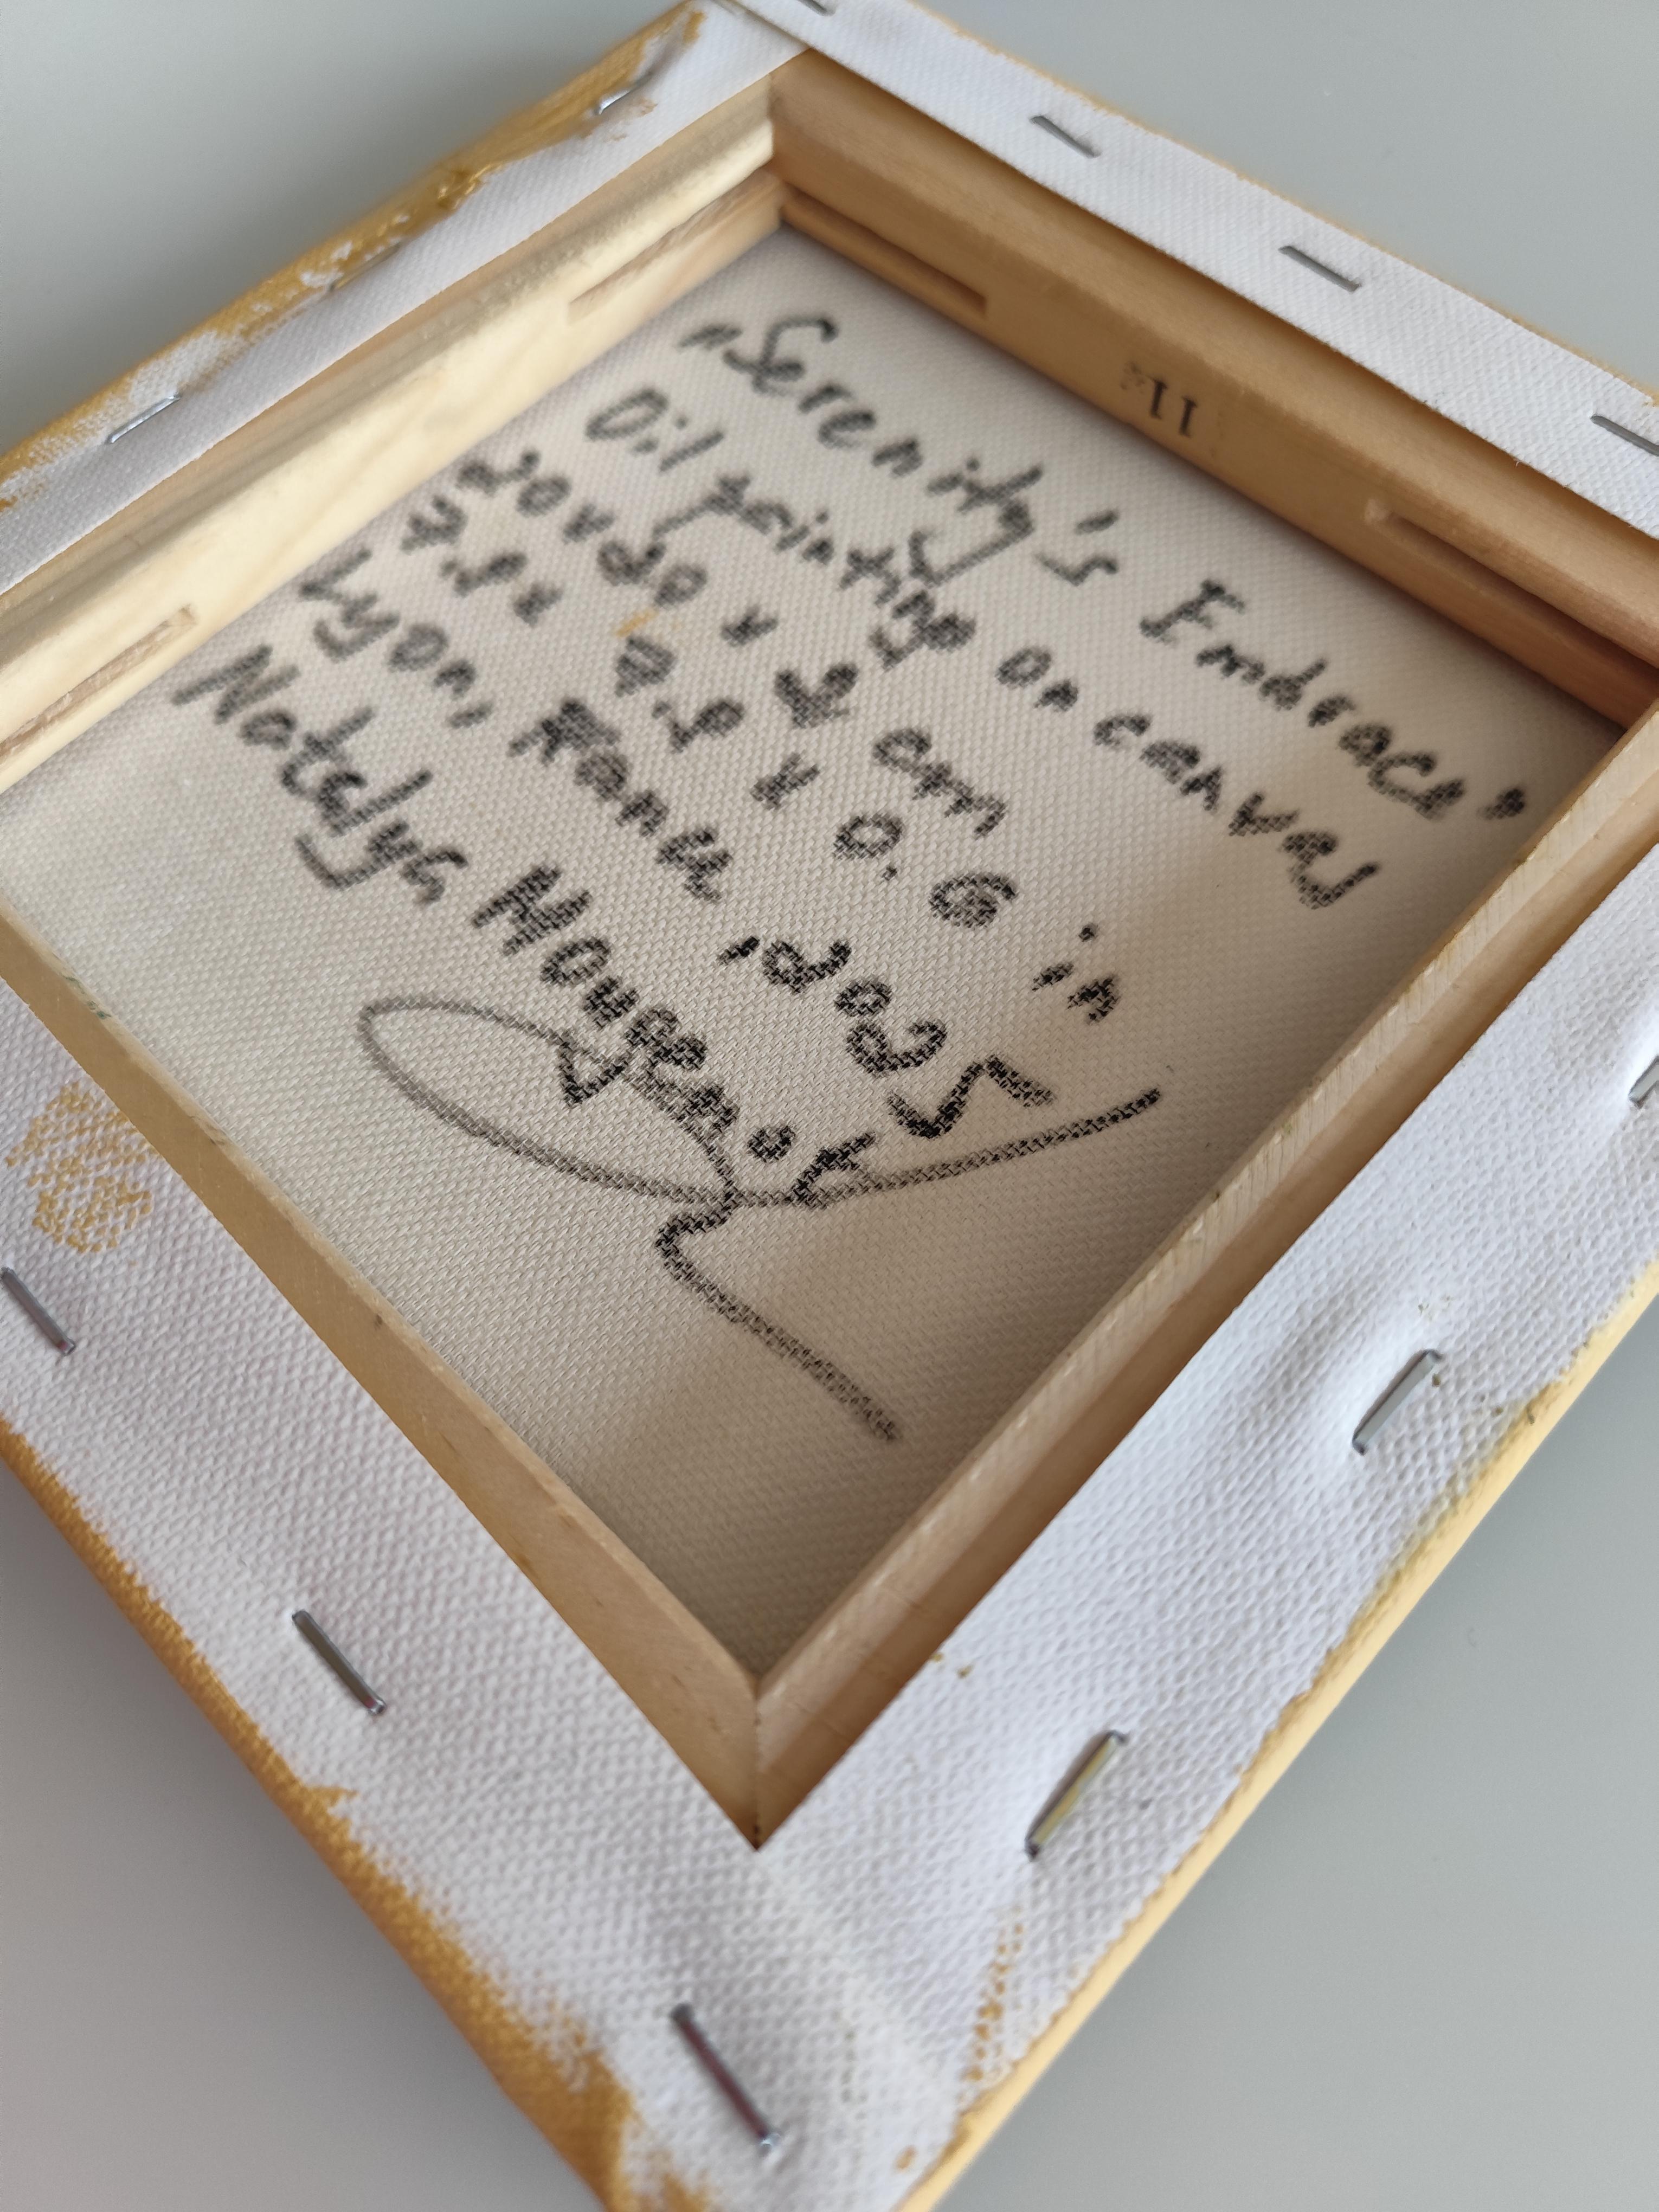 "Serenity's Embrace"
Oil painting on canvas
20 x 20 x 2 cm
x 0.6 in
Lyon, 2025
Natalya Mougenot
11